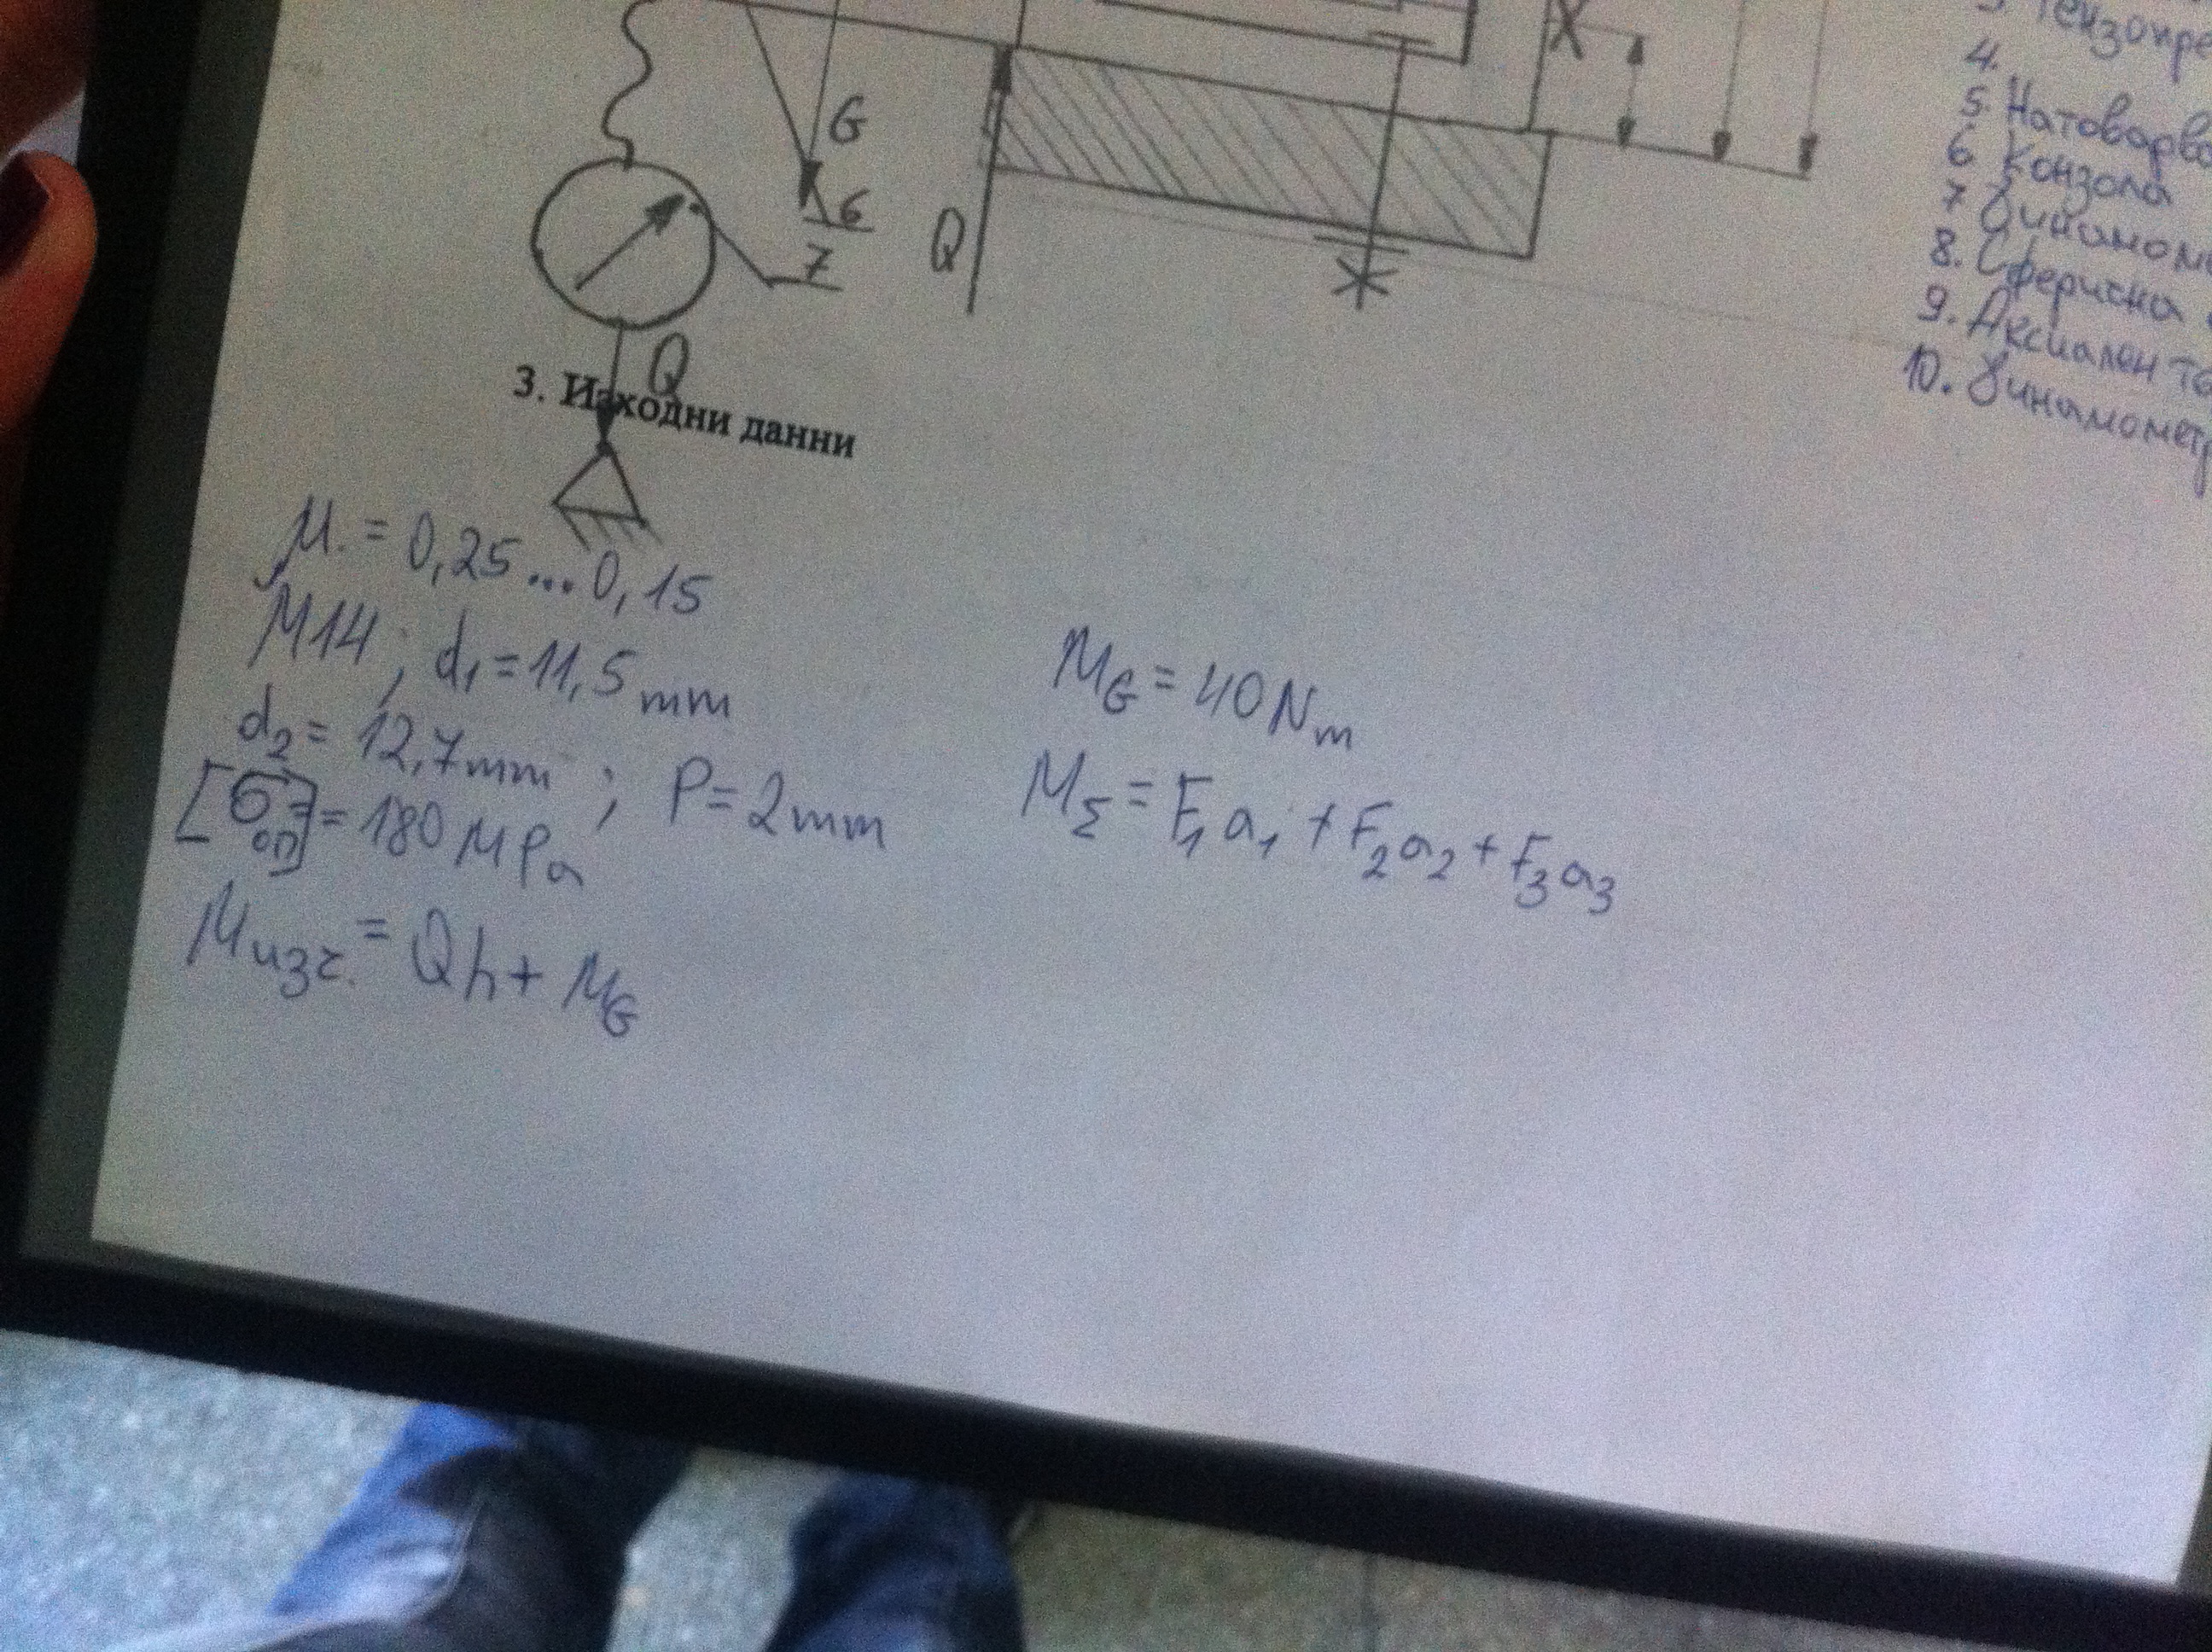 X
G
6
7
Q
Q
4.
5. Натоварв
6 Конзола
7 Динамом
8. Сферична
9. Аксиален
10. Динамомет
3. Изходни данни
μ. = 0,25...0,15
M14; d₁ = 11,5 mm
d₂ = 12,7 mm ; P = 2 mm
[σоп] = 180 MPa
Mизч. = Qh + MG
MG = 40 Nm
MΣ = F₁a₁ + F₂a₂ + F₃a₃